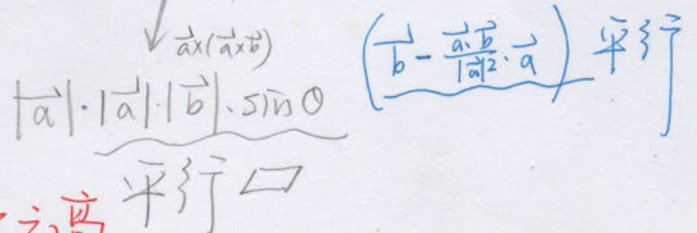 $\vec{a}\times(\vec{a}\times\vec{b})$
$|\vec{a}|\cdot|\vec{a}|\cdot|\vec{b}|\cdot\sin\theta$
平行▱
$\left(\vec{b}-\frac{\vec{a}\cdot\vec{b}}{|\vec{a}|^2}\cdot\vec{a}\right)$ 平行
高